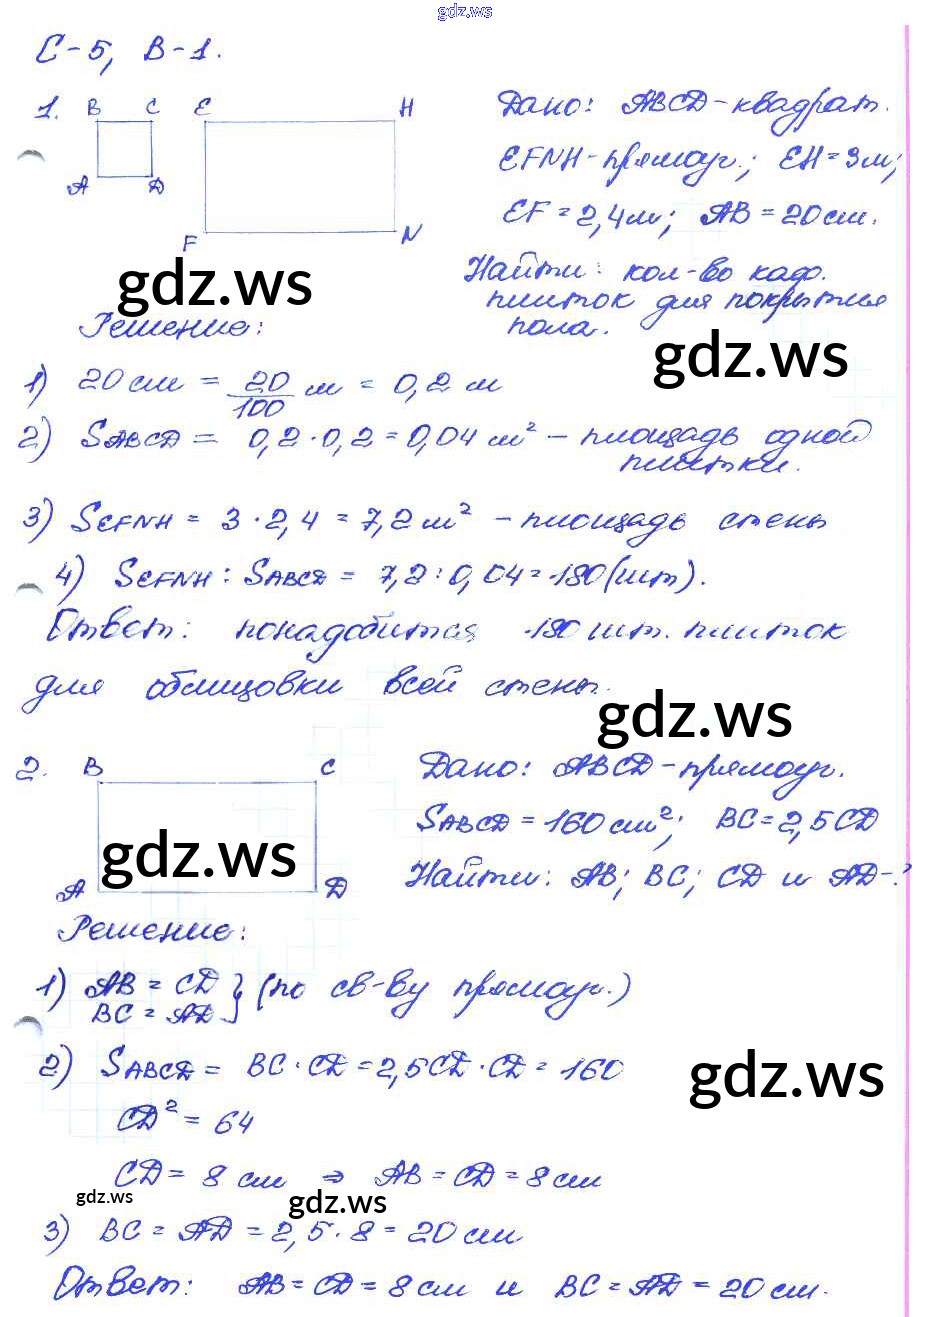 gdz.ws
С-5, В-1.
1. B C E H
A D F N
Дано: ABCD-квадрат.
EFNH-прямоуг.; EH=3м;
EF=2,4м; AB=20см.
Найти: кол-во каф.
плиток для покрытия
пола.
gdz.ws
gdz.ws
Решение:
1) 20см = 20/100 м = 0,2 м
2) SABCD = 0,2·0,2=0,04 м² - площадь одной
плитки.
3) SEFNH = 3·2,4=7,2 м² - площадь стены
4) SEFNH : SABCD = 7,2:0,04=180(шт).
Ответ: понадобится 180 шт. плиток
для облицовки всей стены.
gdz.ws
2. B C
A D
gdz.ws
Дано: ABCD-прямоуг.
SABCD=160см²; BC=2,5CD
Найти: AB; BC; CD и AD-?
Решение:
1) AB = CD
BC = AD } (по св-ву прямоуг.)
2) SABCD = BC·CD=2,5CD·CD=160
gdz.ws
CD²=64
CD=8 см ⇒ AB=CD=8см
gdz.ws
gdz.ws
3) BC=AD=2,5·8=20см
Ответ: AB=CD=8см и BC=AD=20см.